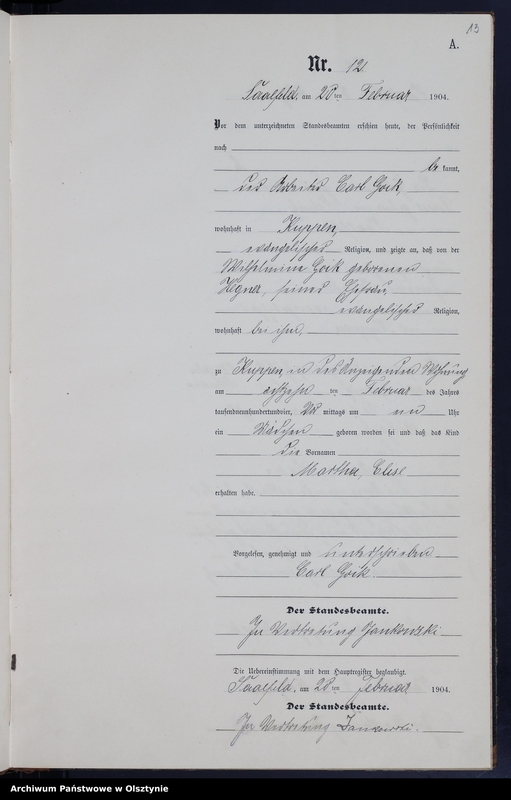 13
A.
Nr. 12.
Saalfeld, am 28ten Februar 1904.
Vor dem unterzeichneten Standesbeamten erschien heute, der Persönlichkeit
nach
be kannt,
der Arbeiter Carl Goik,
wohnhaft in Kuppen,
evangelischer Religion, und zeigte an, daß von der
Wilhelmine Goik geborenen
seiner Ehefrau,
evangelischer Religion,
wohnhaft bei ihm,
zu Kuppen, in des Anzeigenden Wohnung
am achtzehn ten Februar des Jahres
tausendneunhundertundvier, mittags um Uhr
ein Mädchen geboren worden sei und daß das Kind
die Vornamen
Martha, Elise
erhalten habe.
Vorgelesen, genehmigt und unterschrieben
Carl Goik.
Der Standesbeamte.
In Vertretung Jankowski
Die Uebereinstimmung mit dem Hauptregister beglaubigt.
Saalfeld, am 28ten Februar 1904.
Der Standesbeamte.
In Vertretung Jankowski.
Archiwum Państwowe w Olsztynie